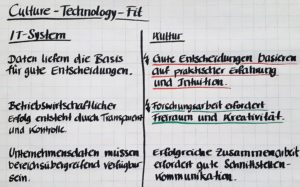 Culture-Technology-Fit
IT-System
Kultur
Daten liefern die Basis
für gute Entscheidungen.
Gute Entscheidungen basieren
auf praktischer Erfahrung
und Intuition.
Betriebswirtschaftlicher
Erfolg entsteht durch Transparenz
und Kontrolle.
Forschungsarbeit erfordert
Freiraum und Kreativität.
Unternehmensdaten müssen
bereichsübergreifend verfügbar
sein.
Erfolgreiche Zusammenarbeit
erfordert gute Schnittstellen-
kommunikation.